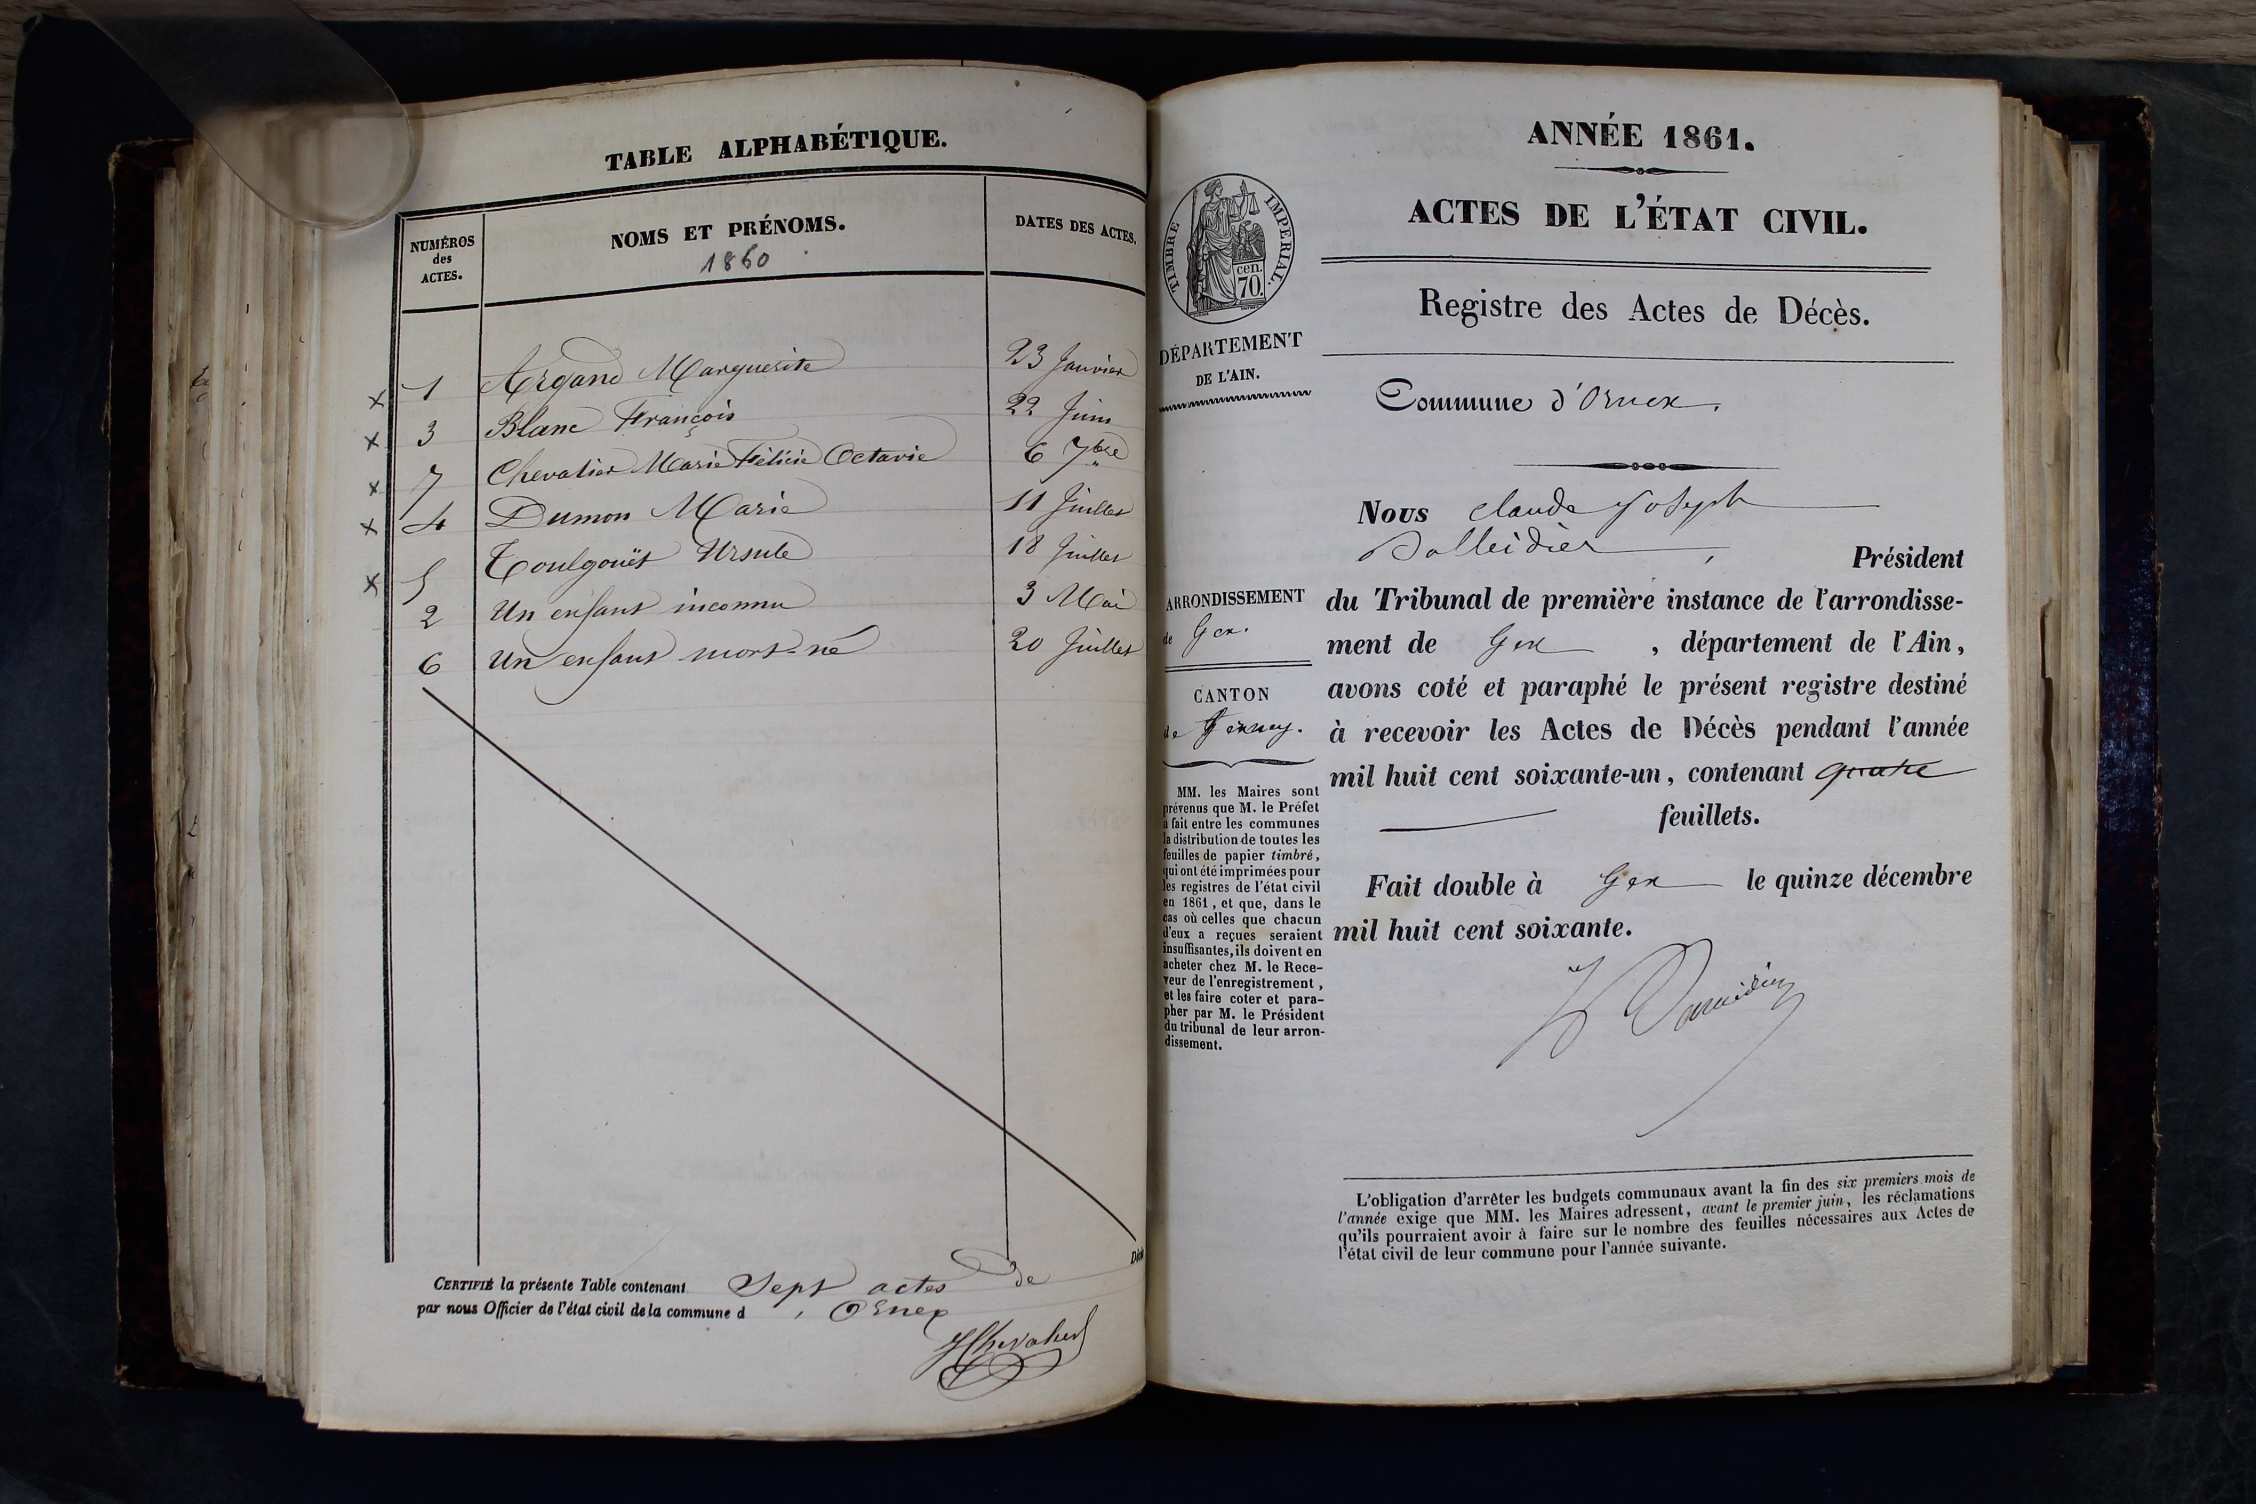 TABLE ALPHABÉTIQUE.
NUMÉROS des ACTES. NOMS ET PRÉNOMS. 1860 DATES DES ACTES.
x 1 Argand Marguerite 23 Janvier
x 3 Blanc François 22 Juin
x 7 Chevalier Marie Félicie Octavie 6 7bre
x 4 Dumon Marie 11 Juillet
x 5 Toulgouët Ursule 18 Juillet
2 Un enfant inconnu 3 Mai
6 Un enfant mort-né 20 Juillet
CERTIFIÉ la présente Table contenant Sept actes de
par nous Officier de l'état civil de la commune d'Ornex
JChevalier
ANNÉE 1861.
ACTES DE L'ÉTAT CIVIL.
Registre des Actes de Décès.
Commune d'Ornex.
TIMBRE IMPERIAL.
cen.
70.
DÉPARTEMENT
DE L'AIN.
ARRONDISSEMENT
de Gex.
CANTON
de Ferney.
MM. les Maires sont
prévenus que M. le Préfet
a fait entre les communes
la distribution de toutes les
feuilles de papier timbré,
qui ont été imprimées pour
les registres de l'état civil
en 1861, et que, dans le
cas où celles que chacun
d'eux a reçues seraient
insuffisantes, ils doivent en
acheter chez M. le Rece-
veur de l'enregistrement,
et les faire coter et para-
pher par M. le Président
du tribunal de leur arron-
dissement.
Nous Claude Joseph
, Président
du Tribunal de première instance de l'arrondisse-
ment de Gex , département de l'Ain,
avons coté et paraphé le présent registre destiné
à recevoir les Actes de Décès pendant l'année
mil huit cent soixante-un, contenant quatre
feuillets.
Fait double à Gex le quinze décembre
mil huit cent soixante.
L'obligation d'arrêter les budgets communaux avant la fin des six premiers mois de
l'année exige que MM. les Maires adressent, avant le premier juin, les réclamations
qu'ils pourraient avoir à faire sur le nombre des feuilles nécessaires aux Actes de
l'état civil de leur commune pour l'année suivante.